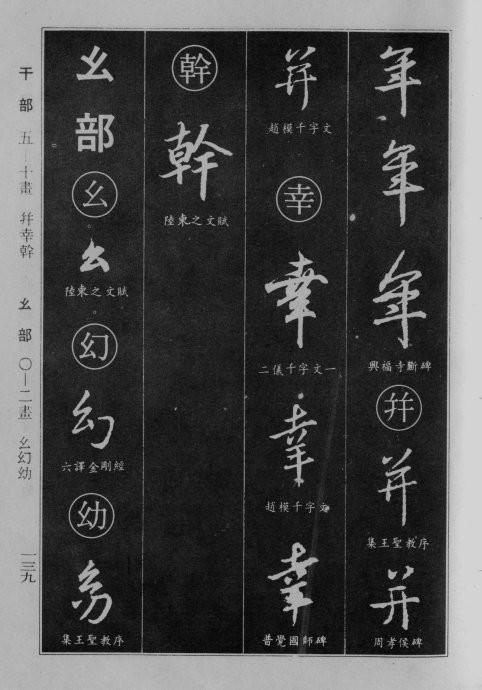 年
年
年
興福寺斷碑
幷
并
集王聖教序
并
周孝侯碑
并
趙模千字文
幸
幸
二儀千字文一
幸
趙模千字文
幸
普覺國師碑
幹
幹
陸柬之文賦
幺部
幺
幺
陸柬之文賦
幻
幻
六譯金剛經
幼
幼
集王聖教序
干部 五—十畫 幷幸幹 幺部 〇—二畫 幺幻幼 一三九